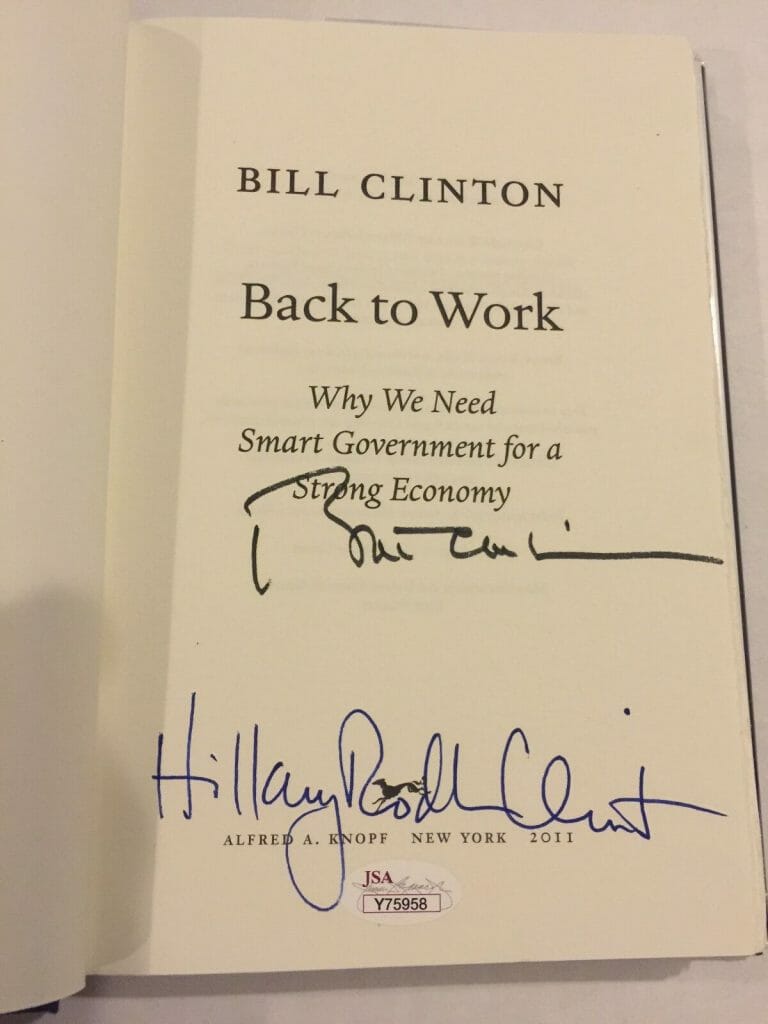 BILL CLINTON
Back to Work
Why We Need
Smart Government for a
Strong Economy
Bill Clinton
Hillary Rodham Clinton
ALFRED A. KNOPF NEW YORK 2011
JSA
Y75958